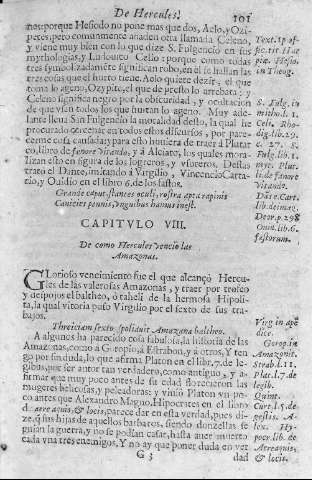 De Hercules. 101
nes: porque Hesiodo no pone mas que dos, Aelo, y Ozi
petes; pero comunmente añaden otra llamada Celeno,
y viene muy bien con lo que dize S. Fulgencio en sus
mythologias, y Ludouico Celio: porque como todas
tres symbolizadamẽte significan robo, en el se hallan las
tres cosas que el hurto tiene. Aelo quiere dezir, el que
toma lo ageno, Ozypite, el que de presto lo arrebata; y
Celeno significa negro por la obscuridad, y ocultacion
de que vsan todos los que hurtan lo ageno. Muy ade-
lante lleua San Fulgencio la moralidad desto, la qual he
procurado cercenar en todos estos discursos, por pare-
cerme corta caudal; para esto huuiera de traer à Plutar
co, libro de fænore vitando, y à Alciato, los quales mora-
lizan esto en figura de los logreros, y vsureros. Destas
trató el Dante, imitando à Virgilio, Vincencio Carta-
rio, y Ouidio en el libro 6. de los fastos.
Grande caput, stantes oculi, rostra apta rapinis
Canicies pennis, vnguibus hamus inest.
Text. in of-
fic. tit Har
pia. Hesio.
in Theog.
S. Fulg. in
mitho. li. 1.
Celi. Rho-
dig. lib. 29.
c. 27. S.
Fulg. lib. 1.
mit. Plut.
li. de fænore
Vitando.
Dãte. Cart.
lib. de imag.
Deor. p. 298
Oui. lib. 6.
fastorum.
CAPITVLO VIII.
De como Hercules vencio las
Amazonas.
GLorioso vencimiento fue el que alcançò Hercu-
les de las valerosas Amazonas, y traer por trofeo
y despojos el baltheo, ò taheli de la hermosa Hipoli-
ta, la qual vitoria puso Virgilio por el sexto de sus tra-
bajos.
Threiciam sexto spoliauit Amazona baltheo.
A algunos ha parecido cosa fabulosa, la historia de las
Amazonas, como à Goropio, à Estrabon, y à otros, Y ten
go por sin duda, lo que afirma Platon en el libr. 7. de le-
gibus, que por ser autor tan verdadero, como antiguo, y a-
firmar que muy poco antes de su edad florecieron las
mugeres belicosas, y peleadoras: y viuio Platon vn po-
co antes que Alexandro Magno. Hipocrates en el libro
de aere aquis, & locis, parece dar en esta verdad, pues di-
ze, q̃ sus hijas de aquellos barbaros, siendo donzellas se
vsauan la guerra, y no se podian casar, hasta auer muerto
cada vna tres enemigos. Y no ay que poner duda en ver
Virg. in ape
dice.
Gorop. in
Amazonic.
Strab. l. 11.
Plat. l. 7. de
legib.
Quint.
Cur. l. 5. de
gestis. A-
lex. Hy-
poc. lib. de
Aere aquis,
& locis.
G 3 dad